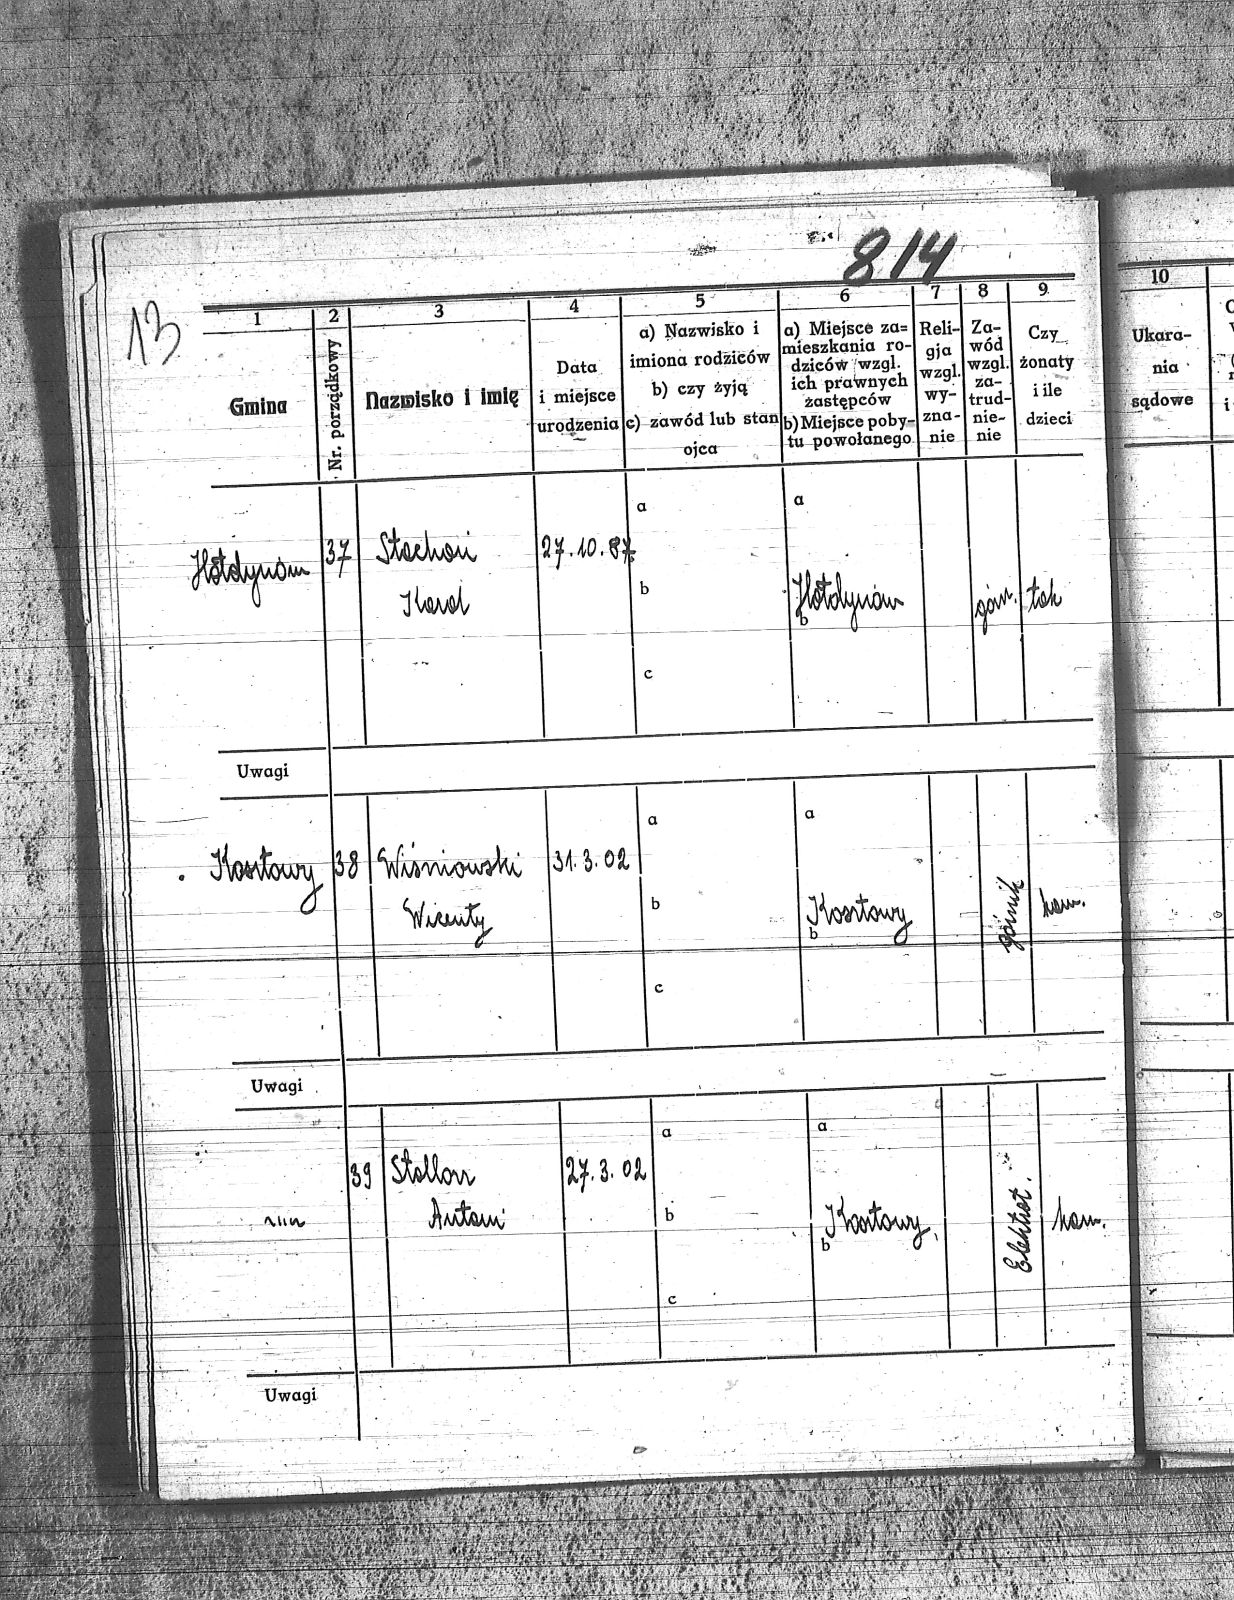 814
13
1
2
3
4
5
6
7
8
9
10
Gmina
Nr. porządkowy
Nazwisko i imię
Data
i miejsce
urodzenia
a) Nazwisko i
imiona rodziców
b) czy żyją
c) zawód lub stan
ojca
a) Miejsce za=
mieszkania ro-
dziców wzgl.
ich prawnych
zastępców
b) Miejsce poby-
tu powołanego
Reli-
gja
wzgl.
wy-
zna-
nie
Za-
wód
wzgl.
za-
trud-
nie-
nie
Czy
żonaty
i ile
dzieci
Ukara-
nia
sądowe
37
Stachoń
Karol
27.10.87
a
b
c
a
b
górn.
tak
Uwagi
Kosztowy
38
Wiśniowski
Wicenty
31.3.02
a
b
c
a
Kosztowy
b
górnik
kaw.
Uwagi
39
Antoni
27.3.02
a
b
c
a
Kosztowy
b
kaw.
Uwagi